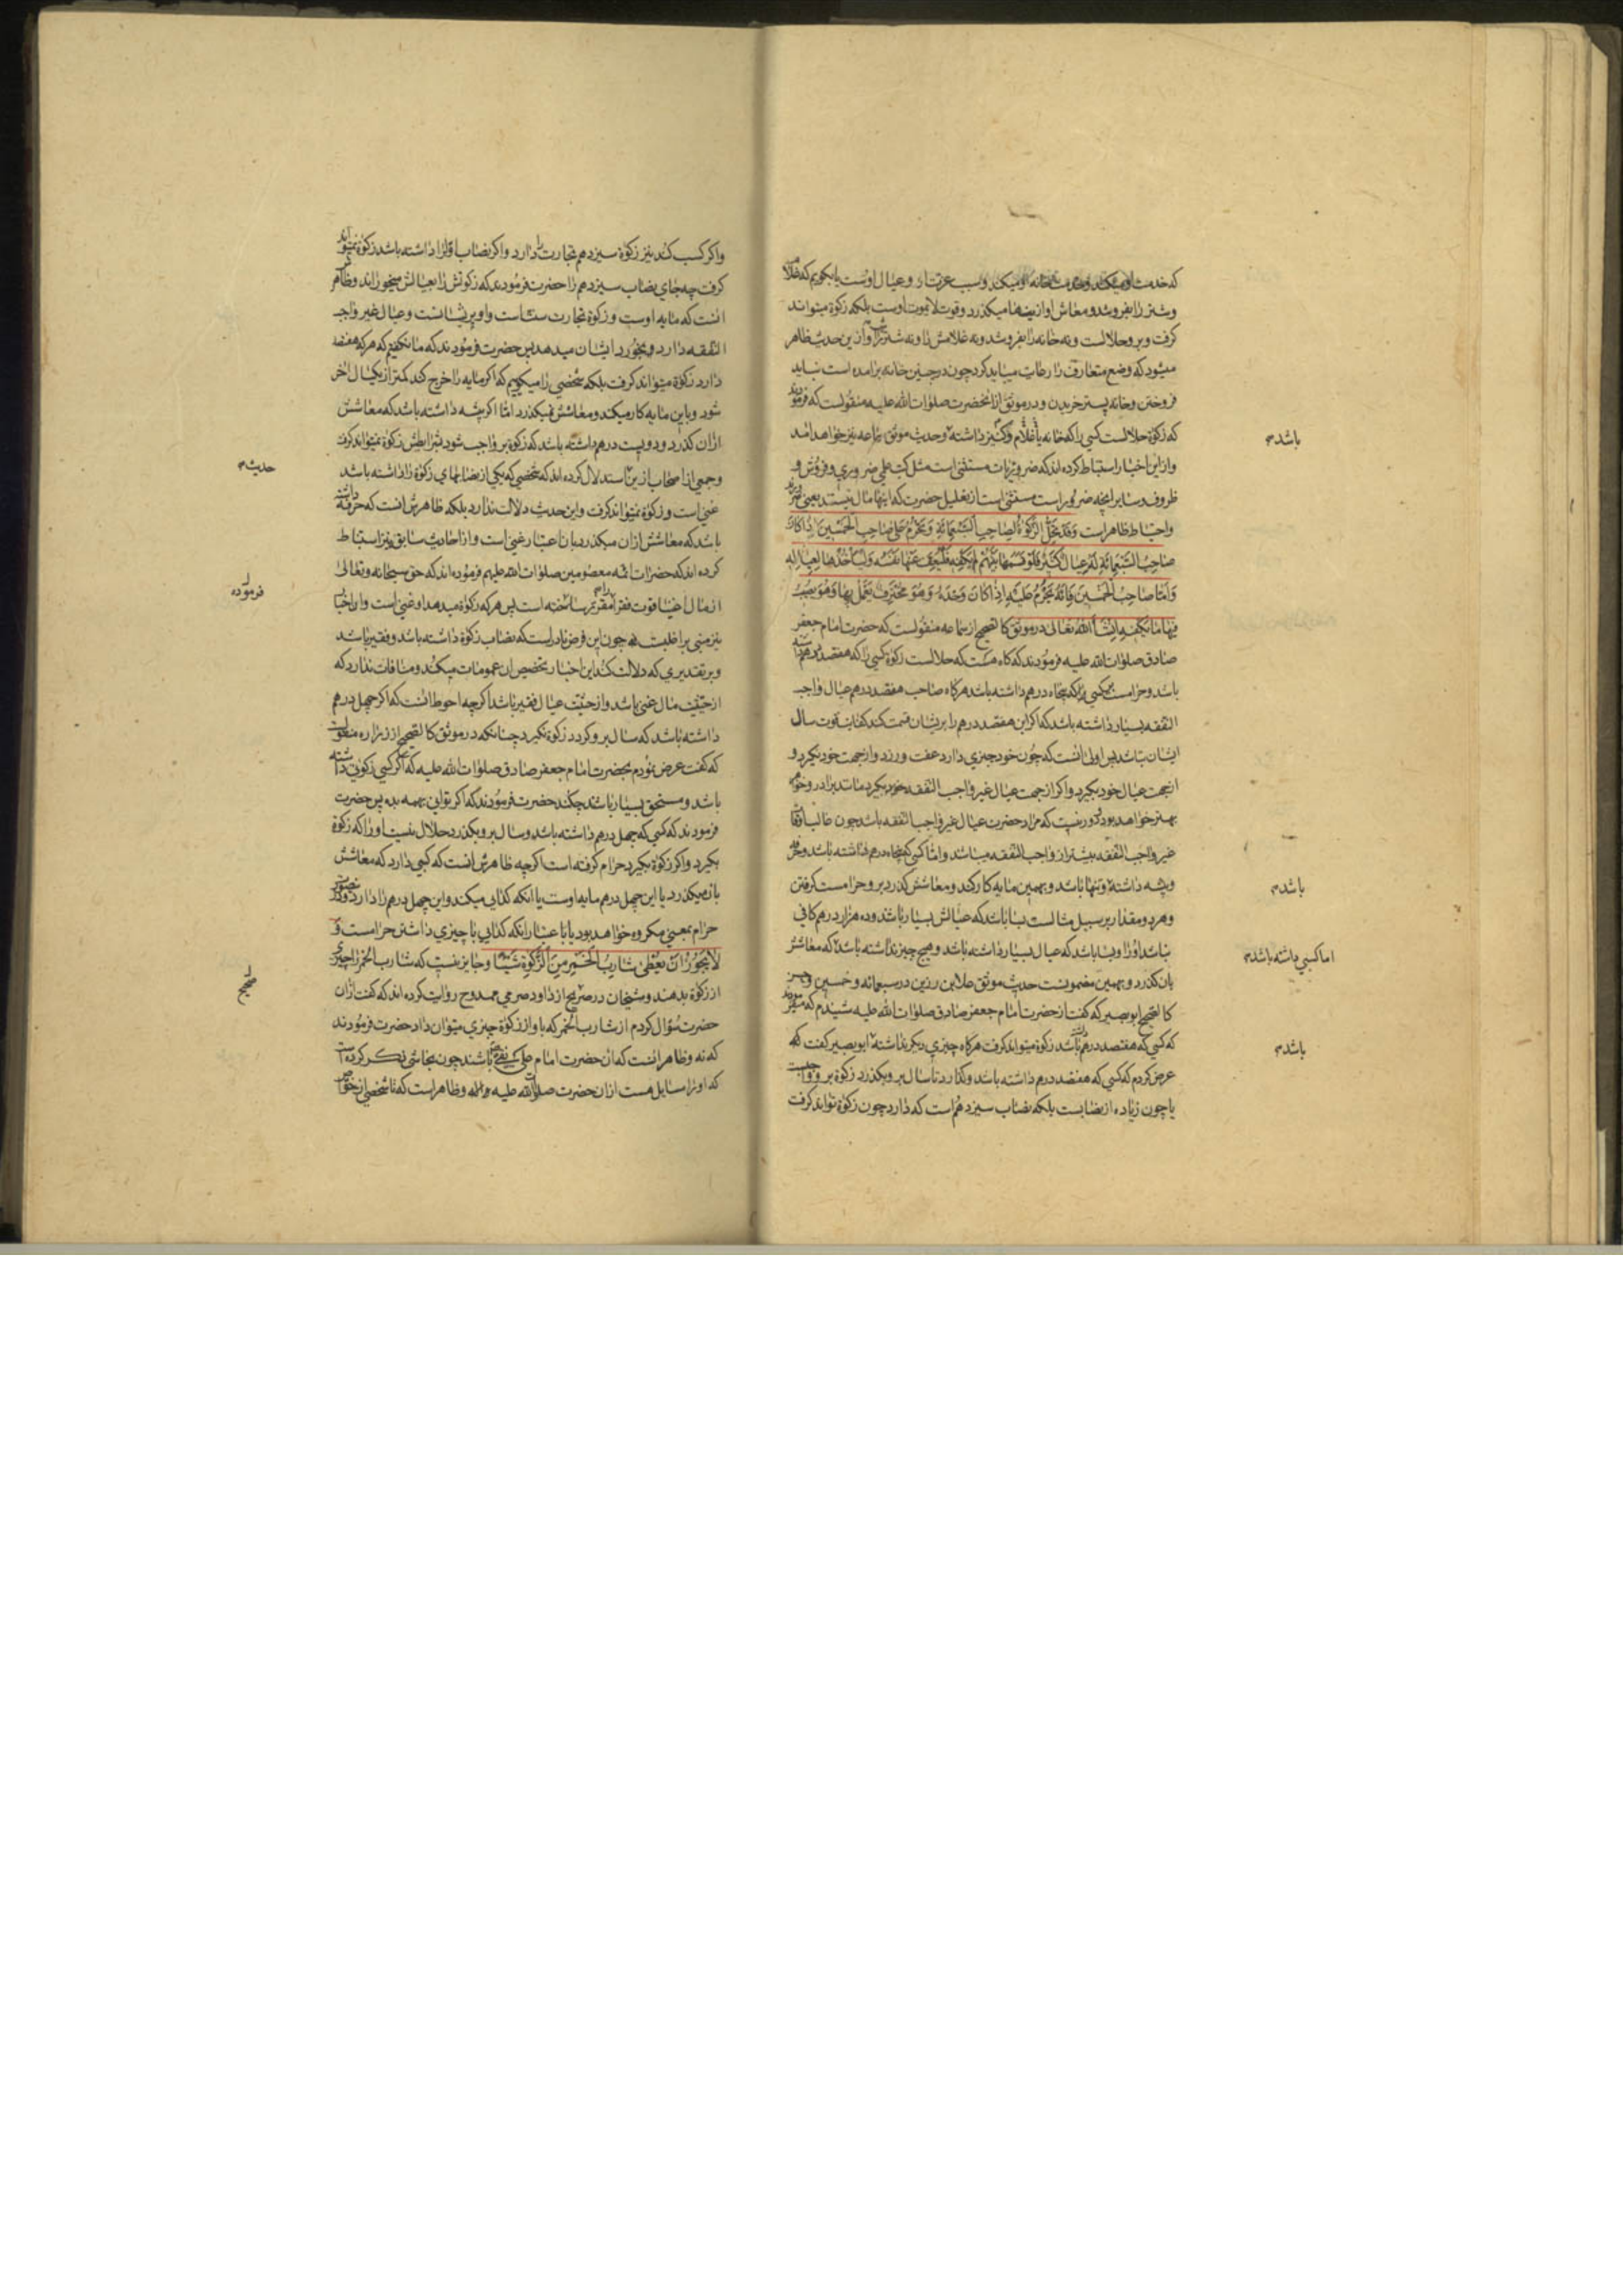 که خدمت او میکند و خدمت خانه او میکند و سبب عزت او و عیال اوست یا بگویم که غلام
و شتر را بفروشد و معاش او از اینها میکذرد و قوت لا یموت اوست بلکه زکوة میتواند
کرفت و برو حلالست و نه خانه را بفروشد و نه غلامش را و نه شترش را و ازین حدیث ظاهر
میشود که وضع متعارف را رعایت میباید کرد چون در حین خانه برآمده است نباید
فروختن و خانه پستتر خریدن و در موثق از انحضرت صلوات الله علیه منقولست که فرمودند
که زکوة حلالست کسی را که خانه یا غلام و کنیز داشته باشد و حدیث موثق سماعه نیز خواهد امد
و از این اخبار استنباط کرده اند که ضروریات مستثنی است مثل کتب علمی ضروری و فروش و
ظروف و سایر آنچه ضرور است مستثنی است از تعلیل حضرت که اینها مال نیستند یعنی
و احتیاط ظاهر است وَقَدْ تَحِلُّ الزَّکوٰةُ لِصَاحِبِ السَّبْعِمِائَةِ وَتَحْرُمُ عَلٰی صَاحِبِ الْخَمْسِینَ اِذَا کَانَ
صَاحِبُ السَّبْعِمِائَةِ لَهُ عِیَالٌ کَثِیرٌ فَلَوْ قَسَمَهَا بَیْنَهُمْ لَمْ یَکْفِهِ فَلْیُعِفَّ عَنْهَا نَفْسَهُ وَلْیَأْخُذْهَا لِعِیَالِهِ
وَاَمَّا صَاحِبُ الْخَمْسِینَ فَاِنَّهُ تَحْرُمُ عَلَیْهِ اِذَا کَانَ وَحْدَهُ وَهُوَ مُحْتَرِفٌ یَعْمَلُ بِهَا وَهُوَ یُصِیبُ
فِیهَا مَا یَکْفِیهِ اِنْشَاءَ اللهُ تَعَالٰی در موثق کالصحیح از سماعه منقولست که حضرت امام جعفر
صادق صلوات الله علیه فرمودند که کاه هست که حلالست زکوة کسی را که هفتصد درهم داشته
باشد و حرامست بر کسی که پنجاه درهم داشته باشد هرکاه صاحب هفتصد درهم عیال واجب
النفقه بسیار داشته باشد که اکر این هفتصد درهم را بریشان قسمت کند کفایت قوت سال
ایشان نباشد پس اولی انست که چون خود چیزی دارد عفت ورزد و از جهت خود نکیرد و
از جهت عیال خود بکیرد و اکر از جهت عیال غیر واجب النفقه خود بکیرد مانند برادر و خواهر
بهتر خواهد بود و دور نیست که مراد حضرت عیال غیر واجب النفقه باشد چون غالب اوقات
غیر واجب النفقه بیشتر از واجب النفقه میباشد و اما کسی که پنجاه درهم داشته باشد و حرفه
و پیشه داشته باشد و تنها باشد و بهمین مایه کار کند و معاشش کذرد برو حرامست کرفتن
و هر دو مقدار بر سبیل مثالست بسا باشد که عیالش بسیار باشد و ده هزار درهم کافی
نباشد او را و بسا باشد که عیال بسیار داشته باشد و هیچ چیز نداشته باشد اما کسبی داشته باشد که معاشش
بان کذرد و بهمین مضمونست حدیث موثق علا بن رزین در سبعمائه و خمسین و در
کالصحیح ابو بصیر که کفت از حضرت امام جعفر صادق صلوات الله علیه شنیدم که میفرمودند
که کسی که هفتصد درهم داشته باشد زکوة میتواند کرفت هرکاه چیزی دیکر نداشته باشد ابو بصیر کفت که
عرض کردم که کسی که هفتصد درهم داشته باشد و نکذارد تا سال برو بکذرد زکوة برو واجبست
یا چون زیاده از نصابست بلکه نصاب سیزدهم است که دارد چون زکوة تواند کرفت
باشد م
باشد م
اما کسبی داشته باشد م
باشد م
و اکر کسب کند نیز زکوة سیزدهم تجارت را دارد و اکر نصاب اول را داشته باشد زکوة نمیتواند
کرفت چه جای نصاب سیزدهم را حضرت فرمودند که زکوتش را بعیالش میخوراند و ظاهر
انست که مایه اوست و زکوة تجارت سنت است و او پریشانست و عیال غیر واجب
النفقه دارد و بخورد ایشان میدهد پس حضرت فرمودند که ما نکفتیم که هرکه هفتصد
دارد زکوة میتواند کرفت بلکه شخصی را میکوییم که اکر مایه را خرج کند کمتر از یکسال آخر
شود و باین مایه کار میکند و معاشش نمیکذرد اما اکر پیشه داشته باشد که معاشش
ازان کذرد و دویست درهم داشته باشد که زکوة برو واجب شود بشرایطش زکوة نمیتواند کرفت
و جمعی از اصحاب ازین حدیث استدلال کرده اند که شخصی که یکی از نصابهای زکوة را داشته باشد
غنی است و زکوة نمیتواند کرفت و این حدیث دلالت ندارد بلکه ظاهرش انست که حرفه داشته
باشد که معاشش ازان میکذرد بان اعتبار غنی است و از احادیث سابق نیز استنباط
کرده اند که حضرات ائمه معصومین صلوات الله علیهم فرموده اند که حق سبحانه و تعالی
از مال اغنیا قوت فقرا مقرر ساخته است پس هرکه زکوة میدهد او غنی است و این اخبار
نیز مبنی بر اغلبست چون این فرض نادر است که نصاب زکوة داشته باشد و فقیر باشد
و بر تقدیری که دلالت کند این اخبار تخصیص ان عمومات میکند و منافات ندارد که
از حیثیت مال غنی باشد و از حیثیت عیال فقیر باشد اکرچه احوط انست که اکر چهل درهم
داشته باشد که سال برو کردد زکوة نکیرد چنانکه در موثق کالصحیح از زراره منقولست
که کفت عرض نمودم بحضرت امام جعفر صادق صلوات الله علیه که اکر کسی زکوتی داشته
باشد و مستحق بسیار باشد چکند حضرت فرمودند که اکر توانی بهمه بده پس حضرت
فرمودند که کسی که چهل درهم داشته باشد و سال برو بکذرد حلال نیست او را که زکوة
بکیرد و اکر زکوة بکیرد حرام کرفته است اکرچه ظاهرش انست که کسبی دارد که معاشش
بان میکذرد یا این چهل درهم مایه اوست یا انکه کدایی میکند و این چهل درهم را دارد و در
حرام بمعنی مکروه خواهد بود یا باعتبار انکه کدایی با چیزی داشتن حرامست وَ
لَا یَجُوزُ اَنْ یُعْطٰی شَارِبُ الْخَمْرِ مِنَ الزَّکوٰةِ شَیْئًا و جایز نیست که شارب الخمر را چیزی
از زکوة بدهند و شیخان در صحیح از داود صرمی ممدوح روایت کرده اند که کفت ازان
حضرت سؤال کردم از شارب الخمر که باو از زکوة چیزی میتوان داد حضرت فرمودند
که نه و ظاهر انست که ان حضرت امام علی نقی باشند چون نجاشی ذکر کرده است
که او را مسایل هست ازان حضرت صلوات الله علیه و ظاهر است که تا شخصی از
حدیث م
فرموده
صحیح